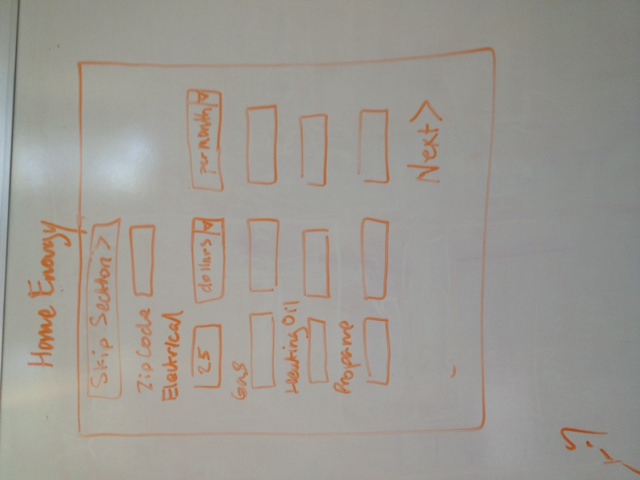 Home Energy
Skip Section >
Zip Code
Electrical
25 dollars per month
Gas
Heating Oil
Propane
Next >